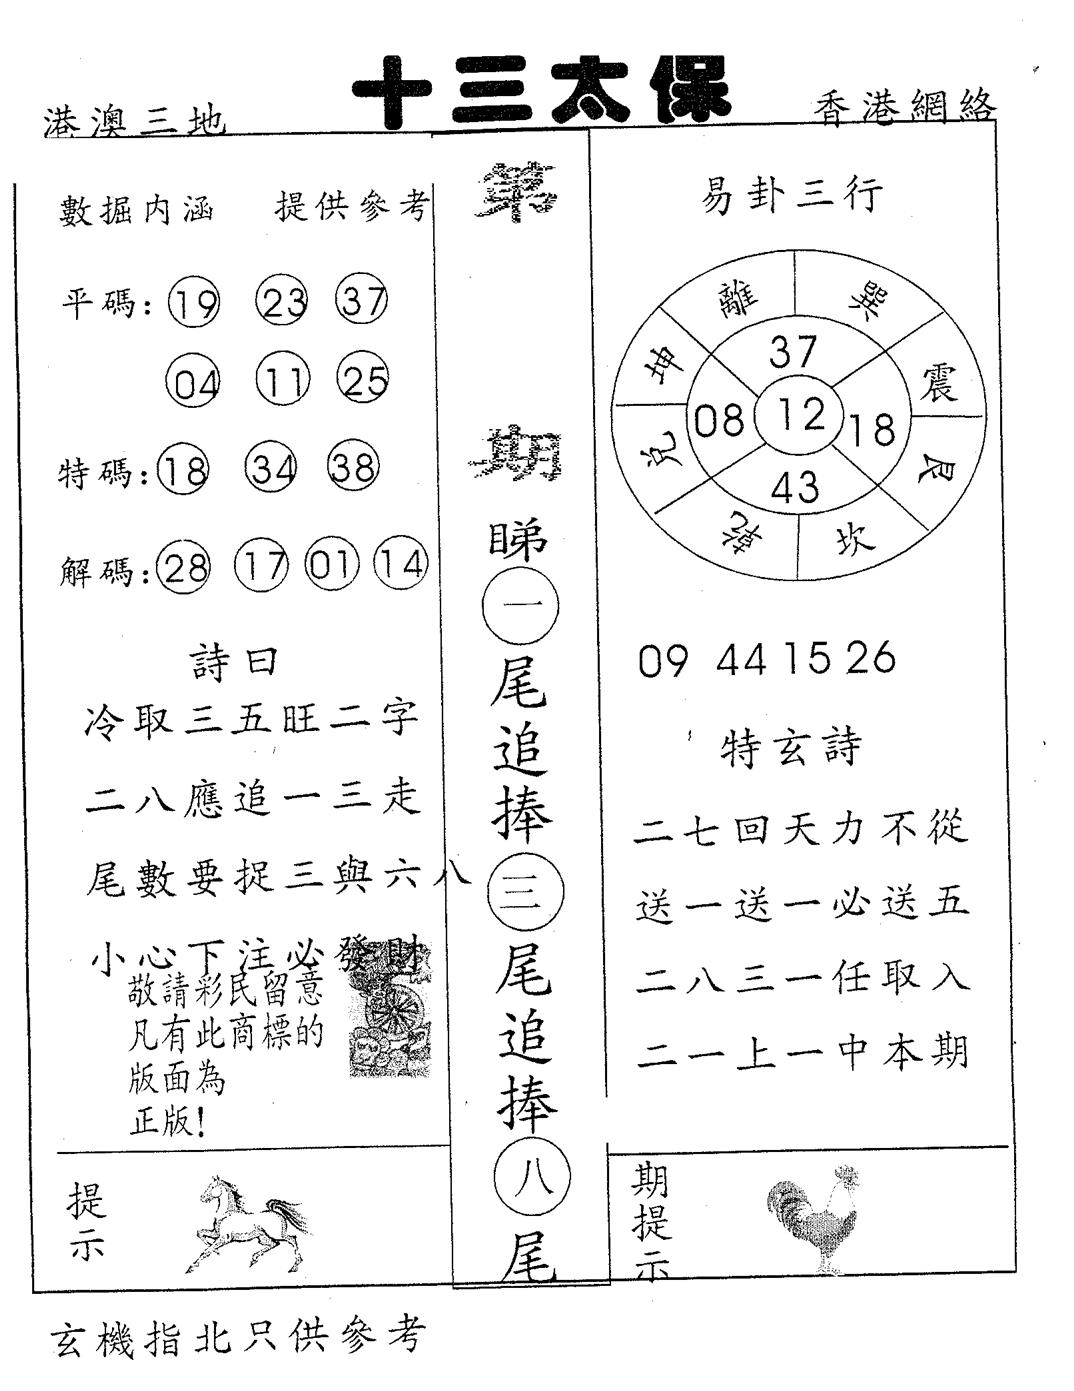 十三太保
港澳三地
香港網絡
數掘内涵 提供參考
平碼: 19 23 37
04 11 25
特碼: 18 34 38
解碼: 28 17 01 14
詩曰
冷取三五旺二字
二八應追一三走
尾數要捉三與六八
小心下注必發財
敬請彩民留意
凡有此商標的
版面為
正版!
提示
第
期
睇
一
尾
追
捧
三
尾
追
捧
八
尾
易卦三行
離 巽
坤 37 震
08 12 18
兌 43 艮
乾 坎
09 44 15 26
特玄詩
二七回天力不從
送一送一必送五
二八三一任取入
二一上一中本期
期提示
玄機指北只供參考